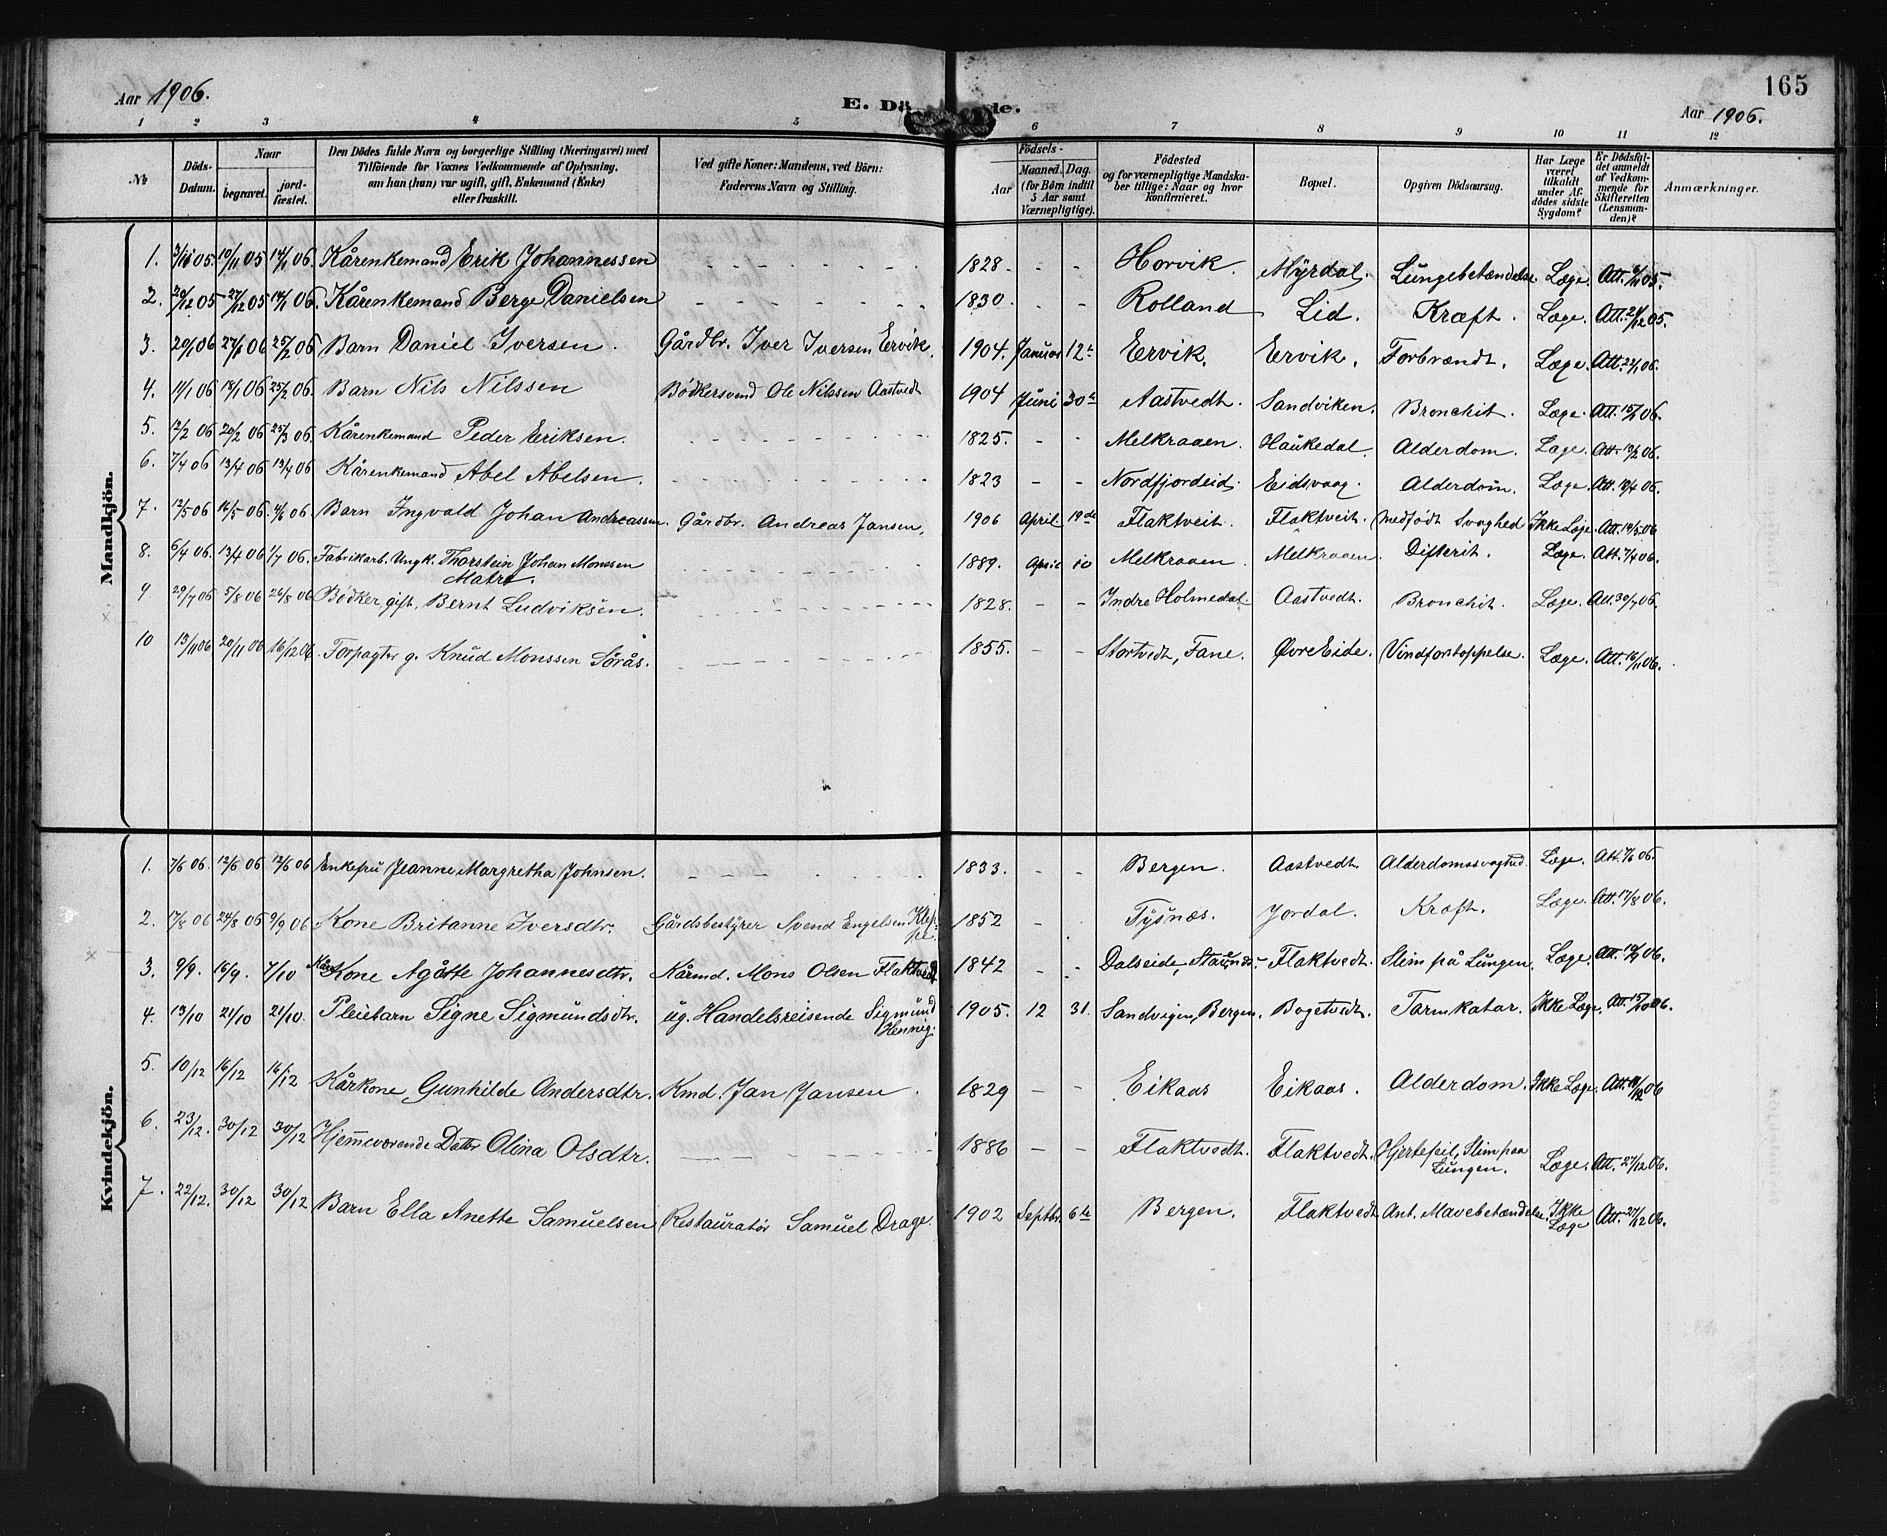 Aar 1906.
E. Dö de.
165
Aar 1906.
1 2 3 4 5 6 7 8 9 10 11 12
№
Döds-Datum.
Naar
begravet.
jord-fæstet.
Den Dödes fulde Navn og borgerlige Stilling (Næringsvei) med
Tilföiende for Voxnes Vedkommende af Oplysning,
om han (hun) var ugift, gift, Enkemand (Enke)
eller fraskilt.
Ved gifte Koner: Mandens, ved Börn:
Faderens Navn og Stilling.
Födsels-
Aar
Maaned. Dag.
(for Börn indtil
5 Aar samt
Værnepligtige).
Födested
og for værnepligtige Mandska-
ber tillige: Naar og hvor
konfirmeret.
Bopæl.
Opgiven Dödsaarsag.
Har Læge
været
tilkaldt
under Af-
dödes sidste
Sygdom?
Er Dödsfal-
det anmeldt
af Vedkom-
mende for
Skifteretten
(Lensman-
den)?
Anmærkninger.
Mandkjön.
1. 10/11 05 14/1 06. Kårenkemand Erik Johannessen 1828 - - Horvik. Myrdal. Lungebetændelse Læge. Att.
2. 20/12 05 27/12 05 14/1 06. Kårenkemand Berge Danielsen 1830 - - Rolland Lid. Kræft. Læge. Att. 21/12 05.
3. 20/1 06 27/1 06 25/2 06. Barn Daniel Iversen. Gårdbr. Iver Iversen Ervik. 1904. Januar 12te Ervik. Ervik. Forbrændt. Læge. Att. 24/1 06.
4. 11/1 06 18/1 06 25/2 06. Barn Nils Nilssen Bødkersvend Ole Nilssen Aastvedt 1904 Juni 30te Aastvedt. Sandviken. Bronchit. Læge. Att. 15/1 06.
5. 12/2 06 20/2 06 25/3 06. Kårenkemand Peder Eriksen. 1825. - - Melkraaen. Haukedal. Alderdom. Læge. Att. 13/2 06.
6. 7/4 06 13/4 06 13/4 06 Kårenkemand Abel Abelsen. 1823 - - Nordfjordeid. Eidsvaag. Alderdom. Læge. Att. 10/4 06.
7. 12/5 06 16/5 06. 4/6 06. Barn Ingvald Johan Andreassen. Gårdbr. Andreas Jansen. 1906 April 19de Flaktveit. Flaktveit. Medfødt Svaghed Ikke Læge. Att. 14/5 06
8. 6/4 06. 13/4 06 1/7 06. Fabrikarb. Ungk. Thorstein Johan Monssen
Matre. 1889. April 10 Melkraaen Melkraaen. Difterit. Læge. Att. 7/4 06.
9 29/7 06 5/8 06 26/8 06 Bødker, gift, Bernt Ludviksen. 1828. - - Indre Holmedal. Aastvedt. Bronchit. Læge. Att. 30/7 06.
10 13/11 06 20/11 06 16/12 06. Forpagter g. Knud Monssen Sørås. 1855. - - Stortvedt, Fane. Øvre Eide. Vindforstoppelse. Læge. Att. 16/11 06.
Kvindekjön.
1. 7/6 06. 12/6 06 12/6 06 Enkefru Jeanne Margretha Johnsen. 1833. - - Bergen. Aastvedt Alderdomssvaghed. Læge. Att. 7/6 06.
2. 17/8 06 24/8 06 9/9 06 Kone Britanne Iversdtr. Gårdsbestyrer Svend Engelsen Klep-
pe. 1852 - . Tysnæs. Jordal. Kræft. Læge. Att. 17/8 06.
3. 9/9. 16/9. 7/10 Kår Kone Agåtte Johannesdtr. Kårmd. Mons Olsen Flaktvedt 1842 - - Dalseide, Flaktvedt. Slim på Lungen. Læge. Att. 06.
4. 13/10 21/10 21/10. Pleiebarn Signe Sigmundsdtr. ug. Handelsreisende Sigmund
Hennig. 1905. 12 31. Sandvigen, Bergen. Bogetvedt. Tarmkatar. Ikke Læge. Att. 15/10 06.
5. 10/12 16/12 16/12 Kårkone, Gunhilde Andersdtr. Kmd. Jan Jansen. 1829 - - Eikaas Eikaas. Alderdom. Ikke Læge. Att. 06
6. 23/12. 30/12 30/12 Hjemmeværende Datter Olina Olsdtr. 1886 - - Flaktvedt. Flaktvedt. Hjertefeil, Slim paa
Lungen. Læge. Att. 27/12 06.
7. 22/12. 30/12 30/12 Barn Ella Anette Samuelsen Restauratør Samuel Drage. 1902 Septbr. 6te Bergen. Flaktvedt Ant. Mavebetændelse. Ikke
Læge Att. 27/12 06.